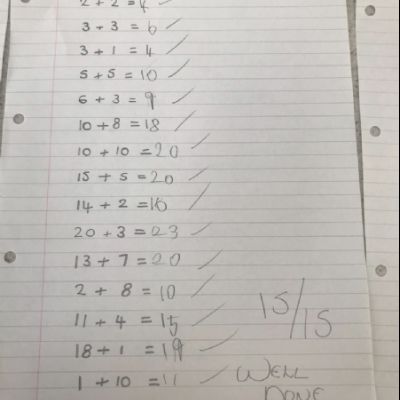 2 + 2 = 4
3 + 3 = 6
3 + 1 = 4
5 + 5 = 10
6 + 3 = 9
10 + 8 = 18
10 + 10 = 20
15 + 5 = 20
14 + 2 = 16
20 + 3 = 23
13 + 7 = 20
2 + 8 = 10
11 + 4 = 15
18 + 1 = 19
1 + 10 = 11
15/15
WELL
DONE